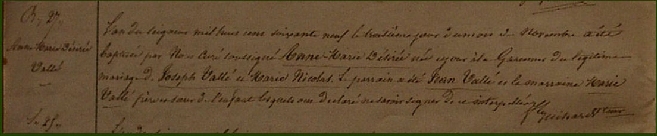 B. 27.
Anne Marie Désirée
Vallé
L'an du seigneur mil huit cent soixante neuf le troisième jour du mois de Novembre a été
baptisée par Nous Curé soussigné Anne-Marie Désirée née ce jour à la Garenne du légitime
mariage de Joseph Vallé et Marie Nicolas. Le parrain a été Jean Vallé et la marraine Marie
Vallé frère et sœur de l'enfant lesquels ont déclaré ne savoir signer de ce interpellés